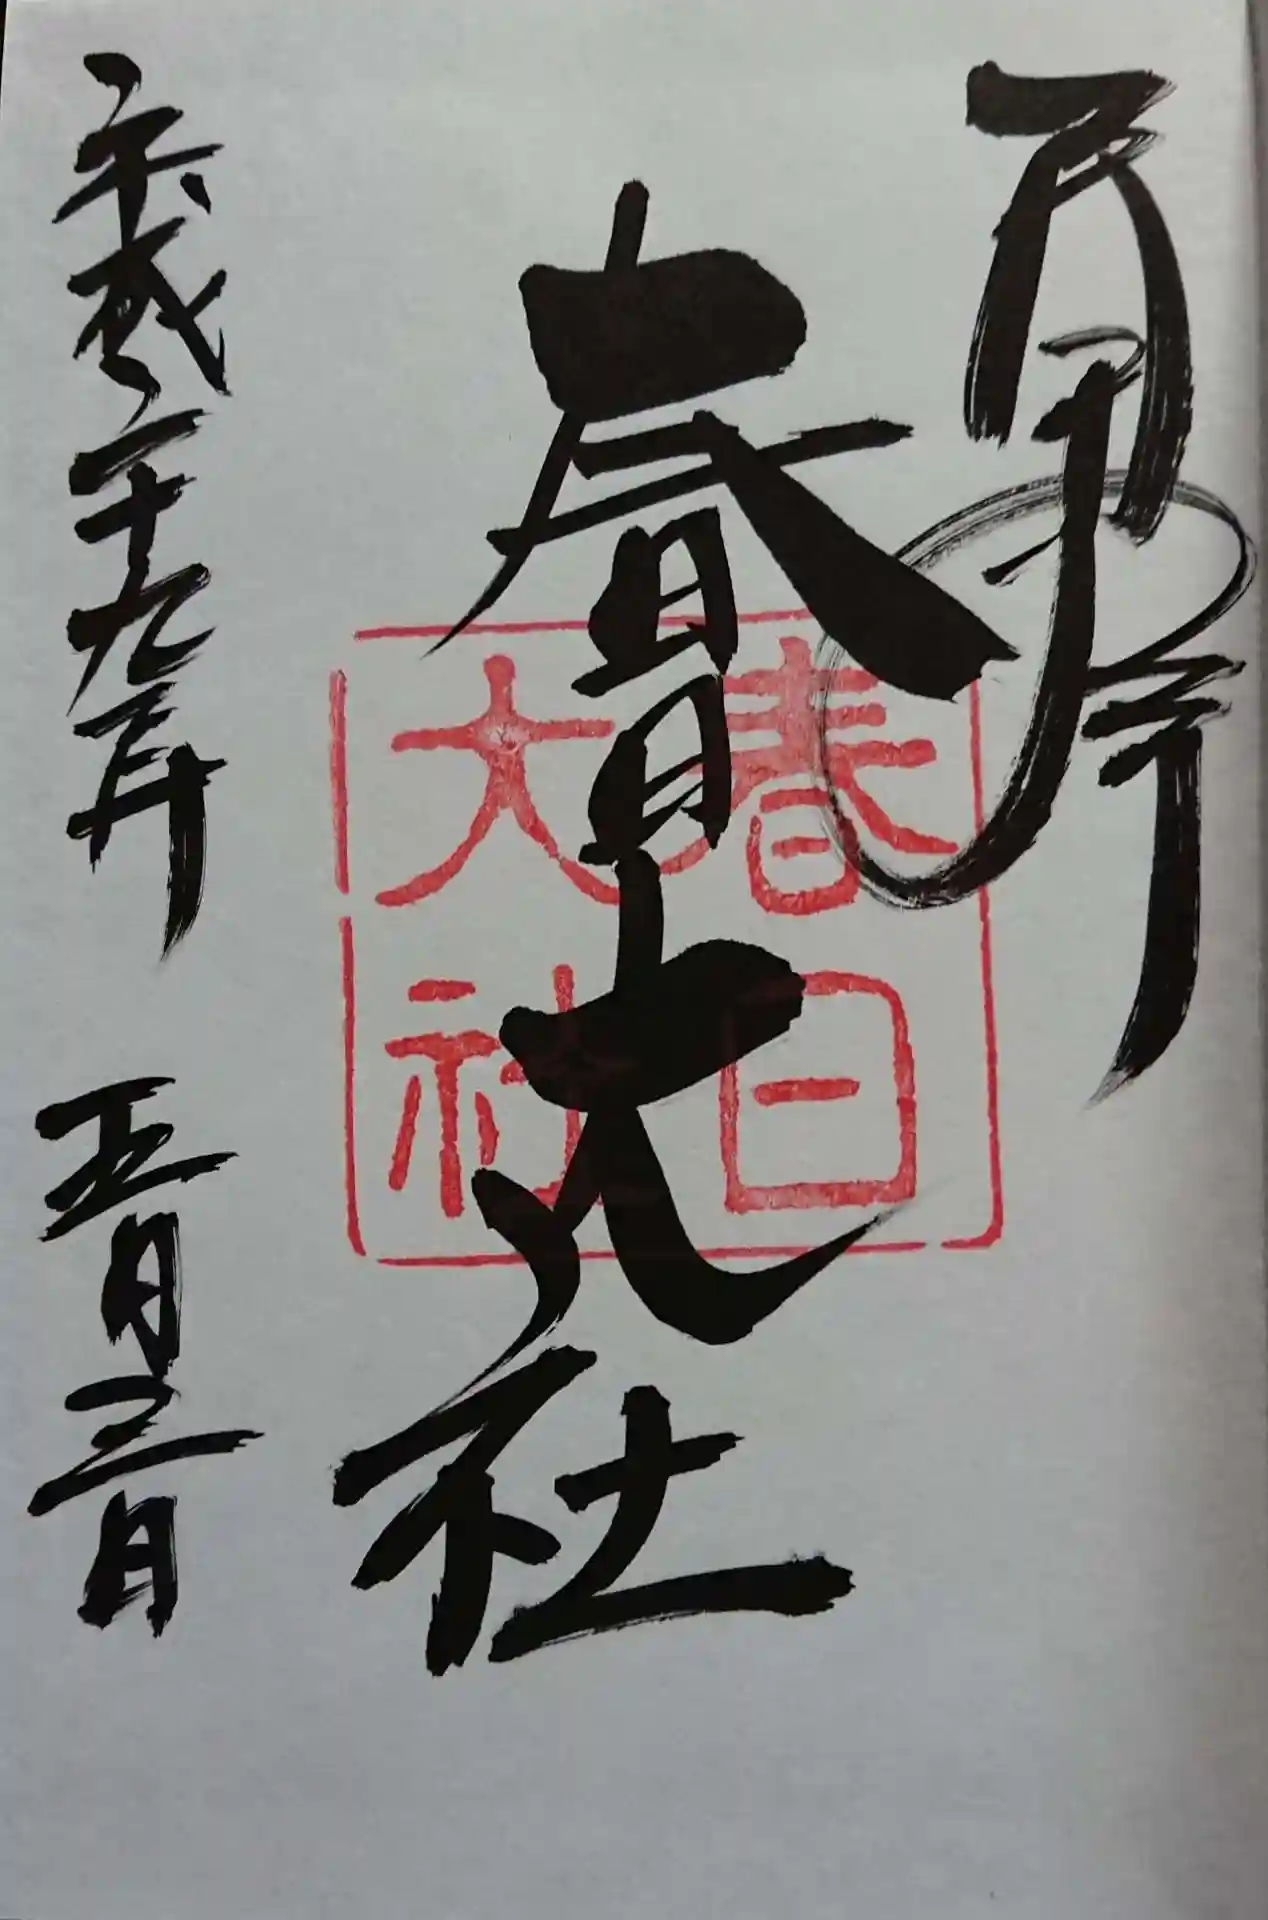 奉拝
春日大社
春日
大社
平成二十九年 五月三日